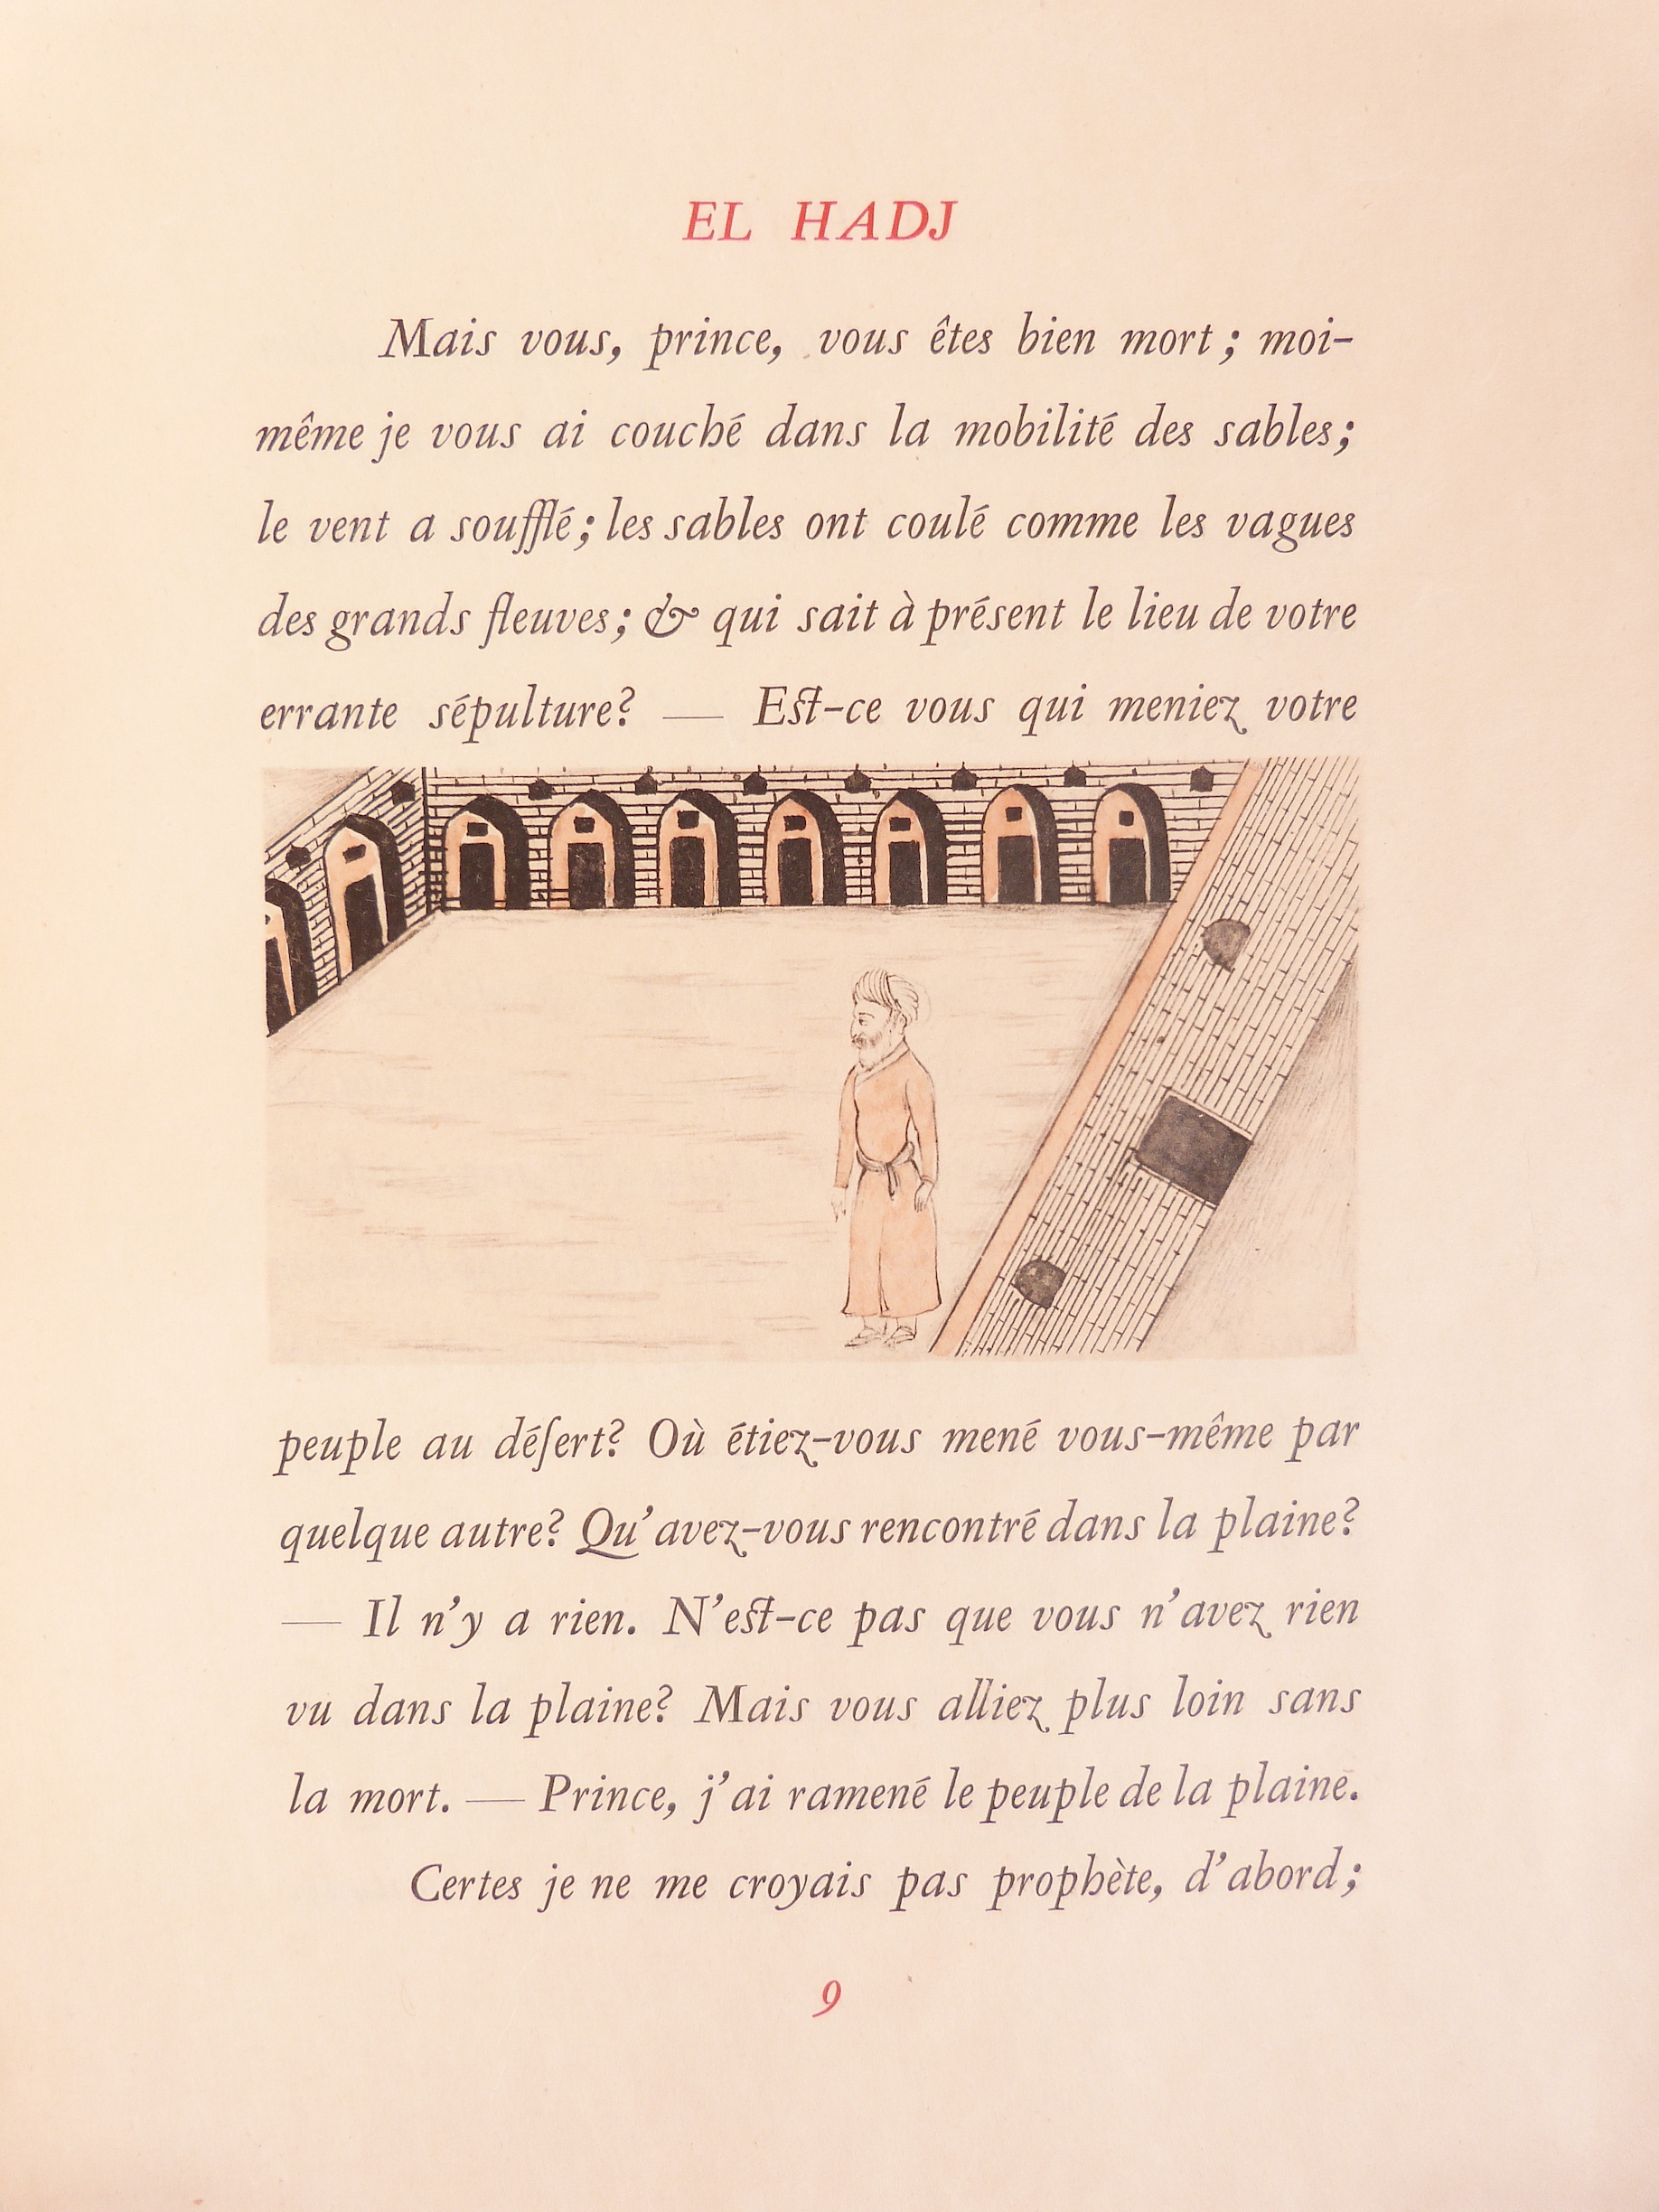 EL HADJ
Mais vous, prince, vous êtes bien mort ; moi-
même je vous ai couché dans la mobilité des sables ;
le vent a soufflé ; les sables ont coulé comme les vagues
des grands fleuves ; & qui sait à présent le lieu de votre
errante sépulture? — Est-ce vous qui meniez votre
peuple au déſert? Où étiez-vous mené vous-même par
quelque autre? Qu'avez-vous rencontré dans la plaine?
— Il n'y a rien. N'est-ce pas que vous n'avez rien
vu dans la plaine? Mais vous alliez plus loin sans
la mort. — Prince, j'ai ramené le peuple de la plaine.
Certes je ne me croyais pas prophète, d'abord ;
9